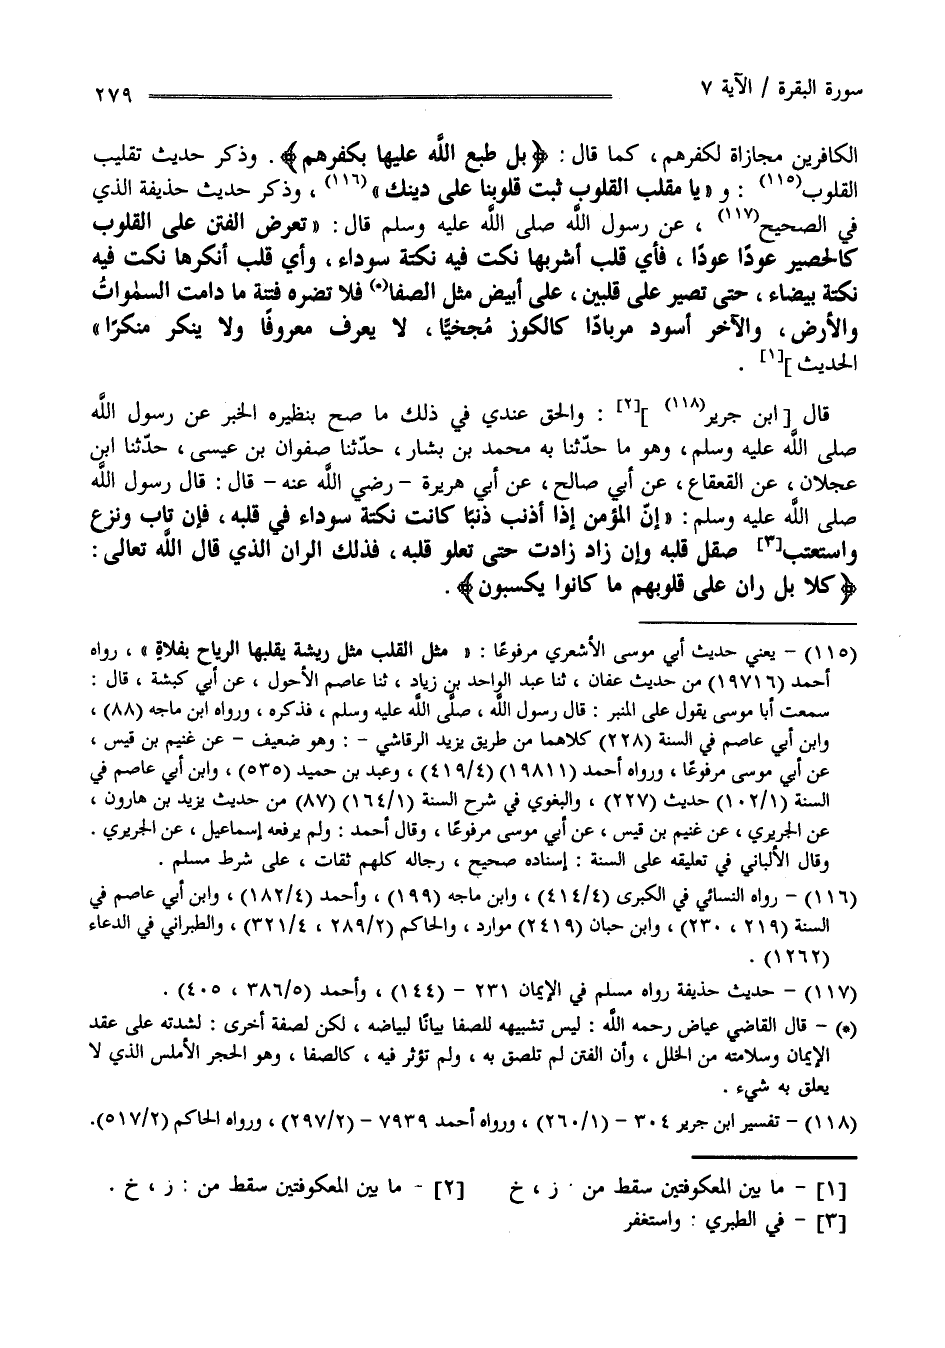 سورة البقرة / الآية ٧ ٢٧٩
الكافرين مجازاة لكفرهم، كما قال : ﴿بل طبع اللَّه عليها بكفرهم﴾. وذكر حديث تقليب
القلوب(١١٥) : و «يا مقلب القلوب ثبت قلوبنا على دينك»(١١٦) ، وذكر حديث حذيفة الذي
في الصحيح(١١٧) ، عن رسول اللَّه صلى اللَّه عليه وسلم قال : «تعرض الفتن على القلوب
كالحصير عودًا عودًا ، فأي قلب أشربها نكت فيه نكتة سوداء ، وأي قلب أنكرها نكت فيه
نكتة بيضاء ، حتى تصير على قلبين، على أبيض مثل الصفا(*) فلا تضره فتنة ما دامت السمٰواتُ
والأرض، والآخر أسود مربادًا كالكوز مُجخيًّا، لا يعرف معروفًا ولا ينكر منكرًا»
الحديث ][١] .
قال [ابن جرير(١١٨) ][٢] : والحق عندي في ذلك ما صح بنظيره الخبر عن رسول اللَّه
صلى اللَّه عليه وسلم، وهو ما حدّثنا به محمد بن بشار، حدّثنا صفوان بن عيسى، حدّثنا ابن
عجلان، عن القعقاع، عن أبي صالح، عن أبي هريرة - رضي اللَّه عنه- قال: قال رسول اللَّه
صلى اللَّه عليه وسلم: «إنّ المؤمن إذا أذنب ذنبًا كانت نكتة سوداء في قلبه، فإن تاب ونزع
واستعتب[٣] صقل قلبه وإن زاد زادت حتى تعلو قلبه، فذلك الران الذي قال اللَّه تعالى:
﴿كلا بل ران على قلوبهم ما كانوا يكسبون﴾.
(١١٥) - يعني حديث أبي موسى الأشعري مرفوعًا : « مثل القلب مثل ريشة يقلبها الرياح بفلاةٍ » ، رواه
أحمد (١٩٧١٦) من حديث عفان ، ثنا عبد الواحد بن زياد ، ثنا عاصم الأحول ، عن أبي كبشة ، قال :
سمعت أبا موسى يقول على المنبر : قال رسول اللَّه ، صلَّى اللَّه عليه وسلم ، فذكره ، ورواه ابن ماجه (٨٨) ،
وابن أبي عاصم في السنة (٢٢٨) كلاهما من طريق يزيد الرقاشي - : وهو ضعيف - عن غنيم بن قيس ،
عن أبي موسى مرفوعًا ، ورواه أحمد (١٩٨١١) (٤١٩/٤) ، وعبد بن حميد (٥٣٥) ، وابن أبي عاصم في
السنة (١٠٢/١) حديث (٢٢٧) ، والبغوي في شرح السنة (١٦٤/١) (٨٧) من حديث يزيد بن هارون ،
عن الجريري ، عن غنيم بن قيس ، عن أبي موسى مرفوعًا ، وقال أحمد : ولم يرفعه إسماعيل ، عن الجريري .
وقال الألباني في تعليقه على السنة : إسناده صحيح ، رجاله كلهم ثقات ، على شرط مسلم .
(١١٦) - رواه النسائي في الكبرى (٤١٤/٤) ، وابن ماجه (١٩٩) ، وأحمد (١٨٢/٤) ، وابن أبي عاصم في
السنة (٢١٩ ، ٢٣٠) ، وابن حبان (٢٤١٩) موارد ، والحاكم (٢٨٩/٢ ، ٣٢١/٤) ، والطبراني في الدعاء
(١٢٦٢) .
(١١٧) - حديث حذيفة رواه مسلم في الإيمان ٢٣١ - (١٤٤) ، وأحمد (٣٨٦/٥ ، ٤٠٥) .
(*) - قال القاضي عياض رحمه اللَّه : ليس تشبيهه للصفا بيانًا لبياضه ، لكن لصفة أخرى : لشدته على عقد
الإيمان وسلامته من الخلل ، وأن الفتن لم تلصق به ، ولم تؤثر فيه ، كالصفا ، وهو الحجر الأملس الذي لا
يعلق به شيء .
(١١٨) - تفسير ابن جرير ٣٠٤ - (٢٦٠/١) ، ورواه أحمد ٧٩٣٩ - (٢٩٧/٢) ، ورواه الحاكم (٥١٧/٢).
[١] - ما بين المعكوفتين سقط من . ز ، خ [٢] - ما بين المعكوفتين سقط من : ز ، خ .
[٣] - في الطبري : واستغفر